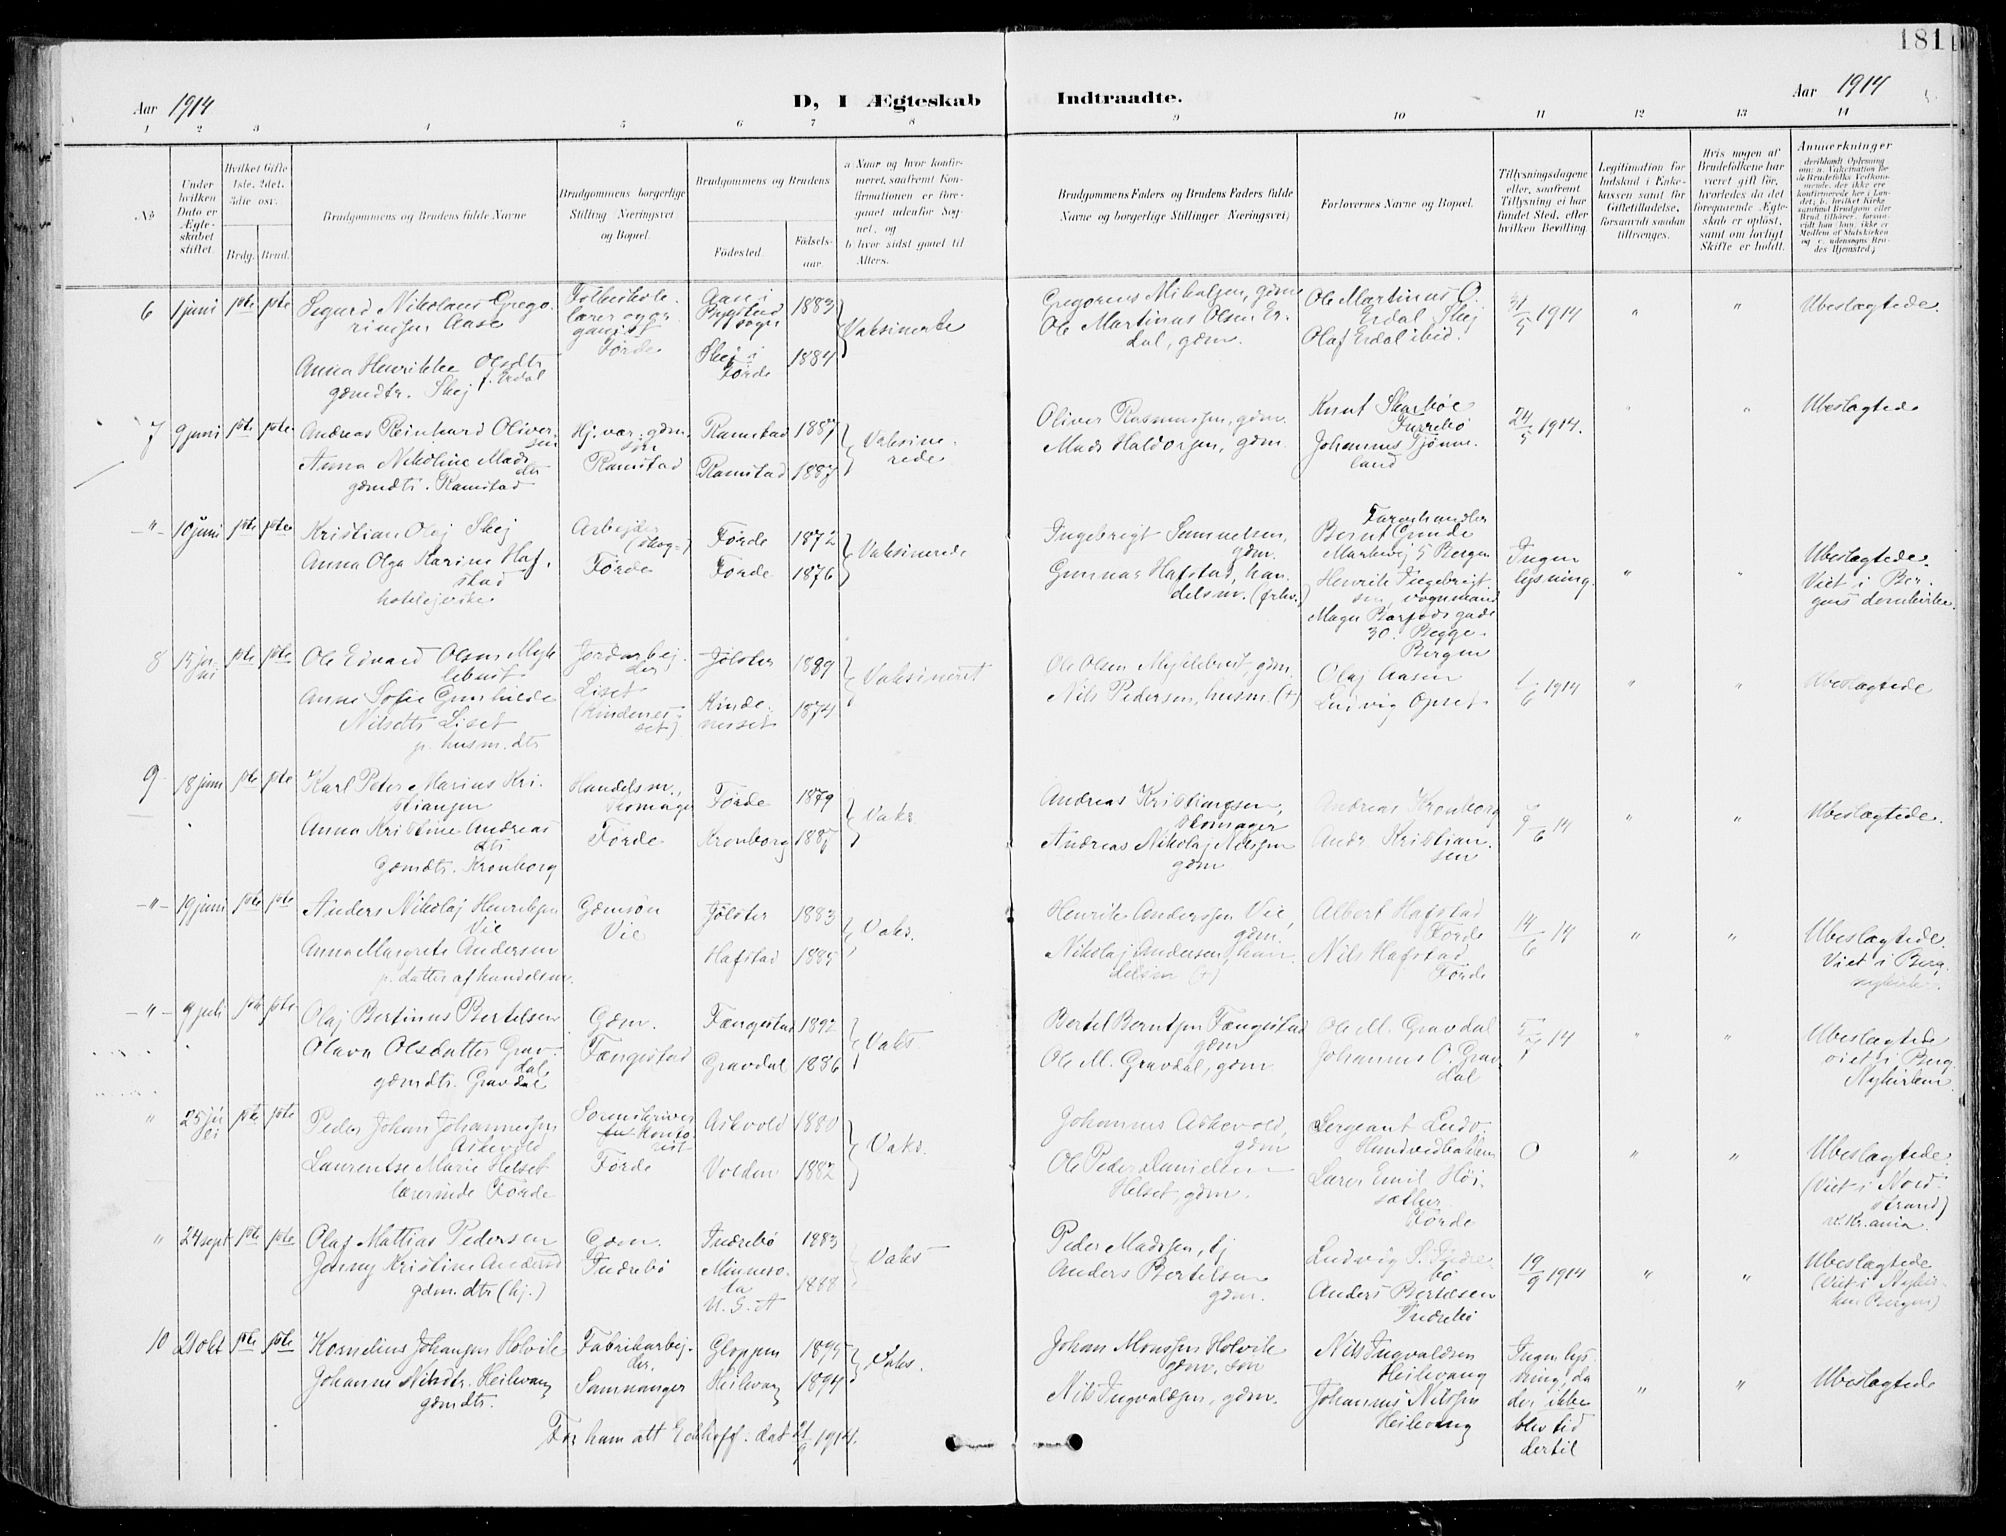 181
Aar 1914
D, I Ægteskab Indtraadte.
Aar 1914
1 2 3 4 5 6 7 8 9 10 11 12 13 14
No
Under hvilken Dato er Ægteskabet stiftet
Hvilket Gifte 1ste, 2det, 3die osv.
Brdg. Brud.
Brudgommens og Brudens fulde Navne
Brudgommens borgerlige Stilling Næringsvei og Bopæl.
Brudgommens og Brudens
Fødested.
Fødselsaar.
a Naar og hvor konfirmeret, saafremt Konfirmationen er foregaaet udenfor Sognet, og
b hvor sidst gaaet til Alters.
Brudgommens Faders og Brudens Faders fulde Navne og borgerlige Stillinger Næringsvei)
Forlovernes Navne og Bopæl.
Tillysningsdagene eller, saafremt Tillysning ei har fundet Sted, efter hvilken Bevilling.
Legitimation for Indskud i Enkekassen samt for Giftetilladelse, forsaavidt saadan tiltrænges.
Hvis nogen af Brudefolkene har været gift før, hvorledes da det foregaaende Ægteskab er opløst, samt om lovligt Skifte er holdt.
Anmerkninger
6 1 juni 1ste 1ste
Sigurd Nikolaus Gregoriussen Aase
Folkeskolelærer og organist Førde
Aase i Bygstad sogn 1883
Vaksinerte
Gregorius Mikalsen, gdm
Ole Martinus O. Erdal Skej
31/5 1914 " " Ubeslægtede.
Anna Henrikke Olsdtr f. Erdal
gdmdtr. Skej
Skej i Førde 1884
Ole Martinus Olsen Erdal, gdm.
Olaf Erdal ibid.
7 9 juni 1ste 1ste
Andreas Reinhard Oliversen
Hj. vær. gdm. søn Ramstad
Ramstad 1887
Vaksinerede
Oliver Rasmussen, gdm.
Knut Skarbøe Indrebø
24/5 1914. " " Ubeslægtede
Anna Nikoline Madsdtr
gdmdtr. Ramstad
Ramstad 1887
Mads Haldorsen, gdm.
Johannes Gjønneland
-"- 10 juni 1ste 1ste
Kristian Olaj Skej
Arbejder (skog-) Førde
Førde 1872
Vaksinerede
Ingebrigt Samuelsen, gdm.
Farvehandler Bernt Gunde Markevej 5 Bergen
Ingen lysning. " "
Ubeslægtede. Viet i Bergens domkirke.
Anna Olga Karine Hafstad
hotelejerske
Førde 1876
Gunnar Hafstad, handelsm. (ørkv.)
Henrik Ingebrigtsen, vognmand Magn. Barfods gade 30. Begge Bergen
8 15 juni 1ste 1ste
Ole Edvard Olsen Myklebust
Jordarbejder Liset (Kindenesset)
Jølster 1889
Vaksineret
Ole Olsen Myklebust, gdm.
Olaj Aasen
1/6 1914 " " Ubeslægtede
Anne Sofie Gunhilde Nilsdtr Liset
p. husm. dtr
Kindenesset 1874
Nils Pedersen, husm. (+)
Ludvig Opset.
9 18 juni 1ste 1ste
Karl Peter Marius Kristiansen
Handelsm., skomager Førde
Førde 1879
Vaks
Andreas Kristiansen, skomager
Andreas Kronborg
7/6 14 " " Ubeslægtede.
Anna Kristine Andreasdtr
Gdmdtr. Kronborg
Kronborg 1887
Andreas Nikolaj Nilssen gdm
Andr Kristiansen
-"- 19 juni 1ste 1ste
Anders Nikolaj Henriksen Vie
Gdmsøn Vie
Jølster 1883
Vaks.
Henrik Anderssen Vie, gdm.
Albert Hafstad Førde
14/6 14 " "
Ubeslægtede. Viet i Berg. nykirke.
Anna Margrete Andersen
p. datter af handelsm.
Hafstad 1885
Nikolaj Andersen, handelsm (+)
Nils Hafstad Førde
-"- 9 juli 1ste 1ste
Olaj Bertinus Bertelsen
Gdm. Fængestad
Fængestad 1892
Vaks
Bertel Berntsen Fængestad gdm
Ole M. Gravdal
5/7 14 " "
Ubeslægtede viet i Berg Nykirken
Olava Olsdatter Gravdal
gdmdtr. Gravdal
Gravdal 1886
Ole M. Gravdal, gdm
Johannes O. Gravdal
" 25 juli 1ste 1ste
Peder Johan Johannessen Askevold
Sorenskriver Kontorist Førde
Askvold 1880
Vaks.
Johannes Askevold, gdm
Sergeant Ludv. Hundvedbakken
0 " "
Ubeslægtede. (Viet i Nordstrand) v. Kr.ania
Laurentse Marie Helset
lærerinde Førde
Volden 1882
Ole Peder Danielsen Helset, gdm.
Lærer Emil Høisæther Førde
" 24 sept 1ste 1ste
Olaf Mattias Pedersen
Gdm. Indrebø
Indrebø 1883
Vaks
Peder Madssen, hj
Ludvig S. Indrebø
19/9 1914 " "
Ubeslægtede (Viet i Nykirken Bergen)
Jenny Kristine Andersd
gdm. dtr (hj.)
Minnesota U.S.A 1888
Anders Bertelsen gdm.
Anders Bertelsen Indrebø
10 2 okt 1ste 1ste
Kornelius Johansen Holvik
Fabrikarbejder. Samnanger
Gloppen 1895
Vaks.
Johan Monssen Holvik gdm. søn
Nils Ingvaldsen Heilevang
Ingen lysning, da der ikke blev tid dertil
" " Ubeslægtede
Johanne Nilsdtr. Heilevang
gdmdtr.
Heilevang 1894
Nils Ingvaldsen, gdm.
Johannes Nilssen Heilevang
For ham att Eckhoff. dat 21/9 1914.